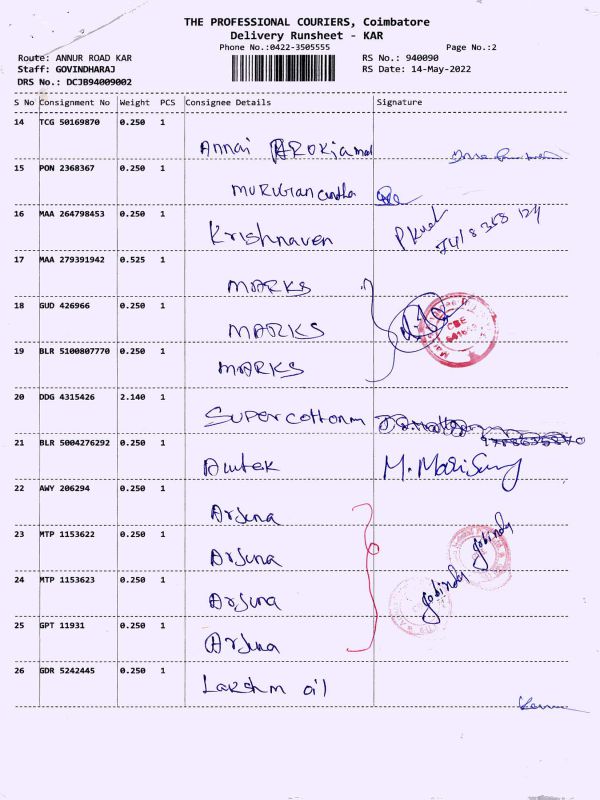 THE PROFESSIONAL COURIERS, Coimbatore
Delivery Runsheet - KAR
Phone No.:0422-3505555
Page No.:2
Route: ANNUR ROAD KAR
RS No.: 940090
Staff: GOVINDHARAJ
RS Date: 14-May-2022
DRS No.: DCJB94009002
S No Consignment No Weight PCS Consignee Details Signature
14 TCG 50169870 0.250 1
Annai AROKiamal
15 PON 2368367 0.250 1
MURUGan
16 MAA 264798453 0.250 1
Krishnaven
17 MAA 279391942 0.525 1
MARKS
18 GUD 426966 0.250 1
MARKS
CBE
19 BLR 5100807770 0.250 1
MARKS
20 DDG 4315426 2.140 1
SUPERcottonm
21 BLR 5004276292 0.250 1
Amtek M.
22 AWY 206294 0.250 1
Arjuna
23 MTP 1153622 0.250 1
Arjuna gobinda
24 MTP 1153623 0.250 1
Arjuna gobinda
25 GPT 11931 0.250 1
Arjuna
26 GDR 5242445 0.250 1
Lakshm oil